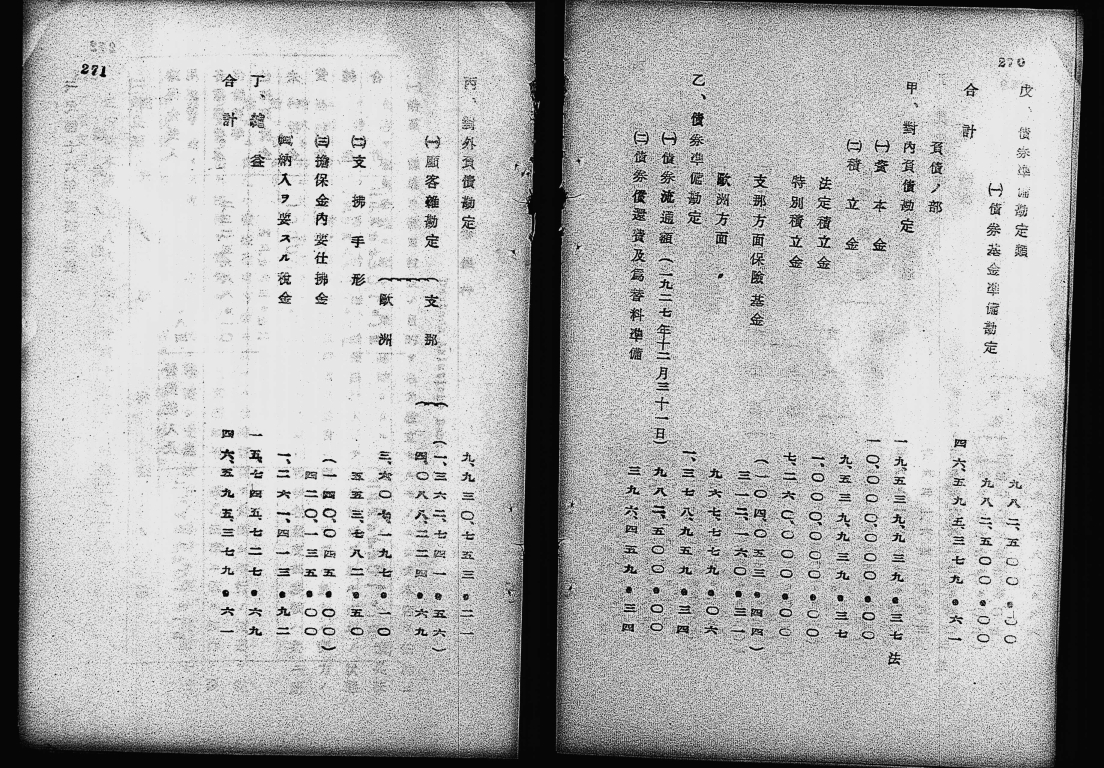 270
戊、債券準備勘定類 九八二、五〇〇・〇〇
㈠債券基金準備勘定 九八二、五〇〇・〇〇
合計 四六、五九五、三七九・六一
負債ノ部
甲、對內負債勘定 一九、五三九、九三九・三七法
㈠資本金 一〇、〇〇〇、〇〇〇・〇〇
㈡積立金 九、五三九、九三九・三七
法定積立金 一、〇〇〇、〇〇〇・〇〇
特別積立金 七、二六〇、〇〇〇・〇〇
支那方面保險基金 (一〇四、〇五三・四四)
三一二、一六〇・三一
歐洲方面 九六七、七七九・〇六
乙、債券準備勘定 一、三七八、九五九・三四
㈠債券流通額(一九二七年十二月三十一日) 九八二、五〇〇・〇〇
㈡債券償還費及爲替料準備 三九六、四五九・三四
271
丙、對外負債勘定 九、九三〇、七五三・二一
㈠顧客雜勘定
支那 (一、三六二、七四一・五六)
四、〇八八、二二四・六九
歐洲 三、六〇七、一九七・一〇
㈡支拂手形 五五三、七八二・五〇
㈢擔保金內要仕拂金 (一四〇、〇四五・〇〇)
四二〇、一三五・〇〇
㈣納入ヲ要スル税金 一、二六一、四一三・九二
丁、總益 一五、七四五、七二七・六九
合計 四六、五九五、三七九・六一